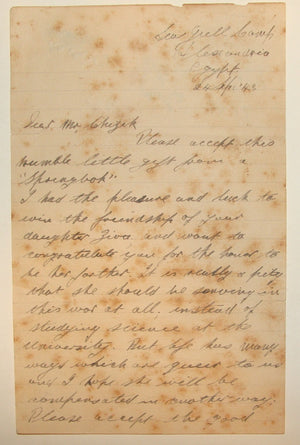 Camp,
Alexandria
Egypt
24 '43
Dear Mr. Chizik
Please accept this
humble little gift from a
"Springbok".
I had the pleasure and luck to
win the friendship of your
daughter Ziva and want to
congratulate you for the honour to
be her father. It is really a pity
that she should be serving in
this war at all, instead of
studying science at the
University. But life has many
ways which are queer to us
and I hope she will be
compensated in another way.
Please accept the good